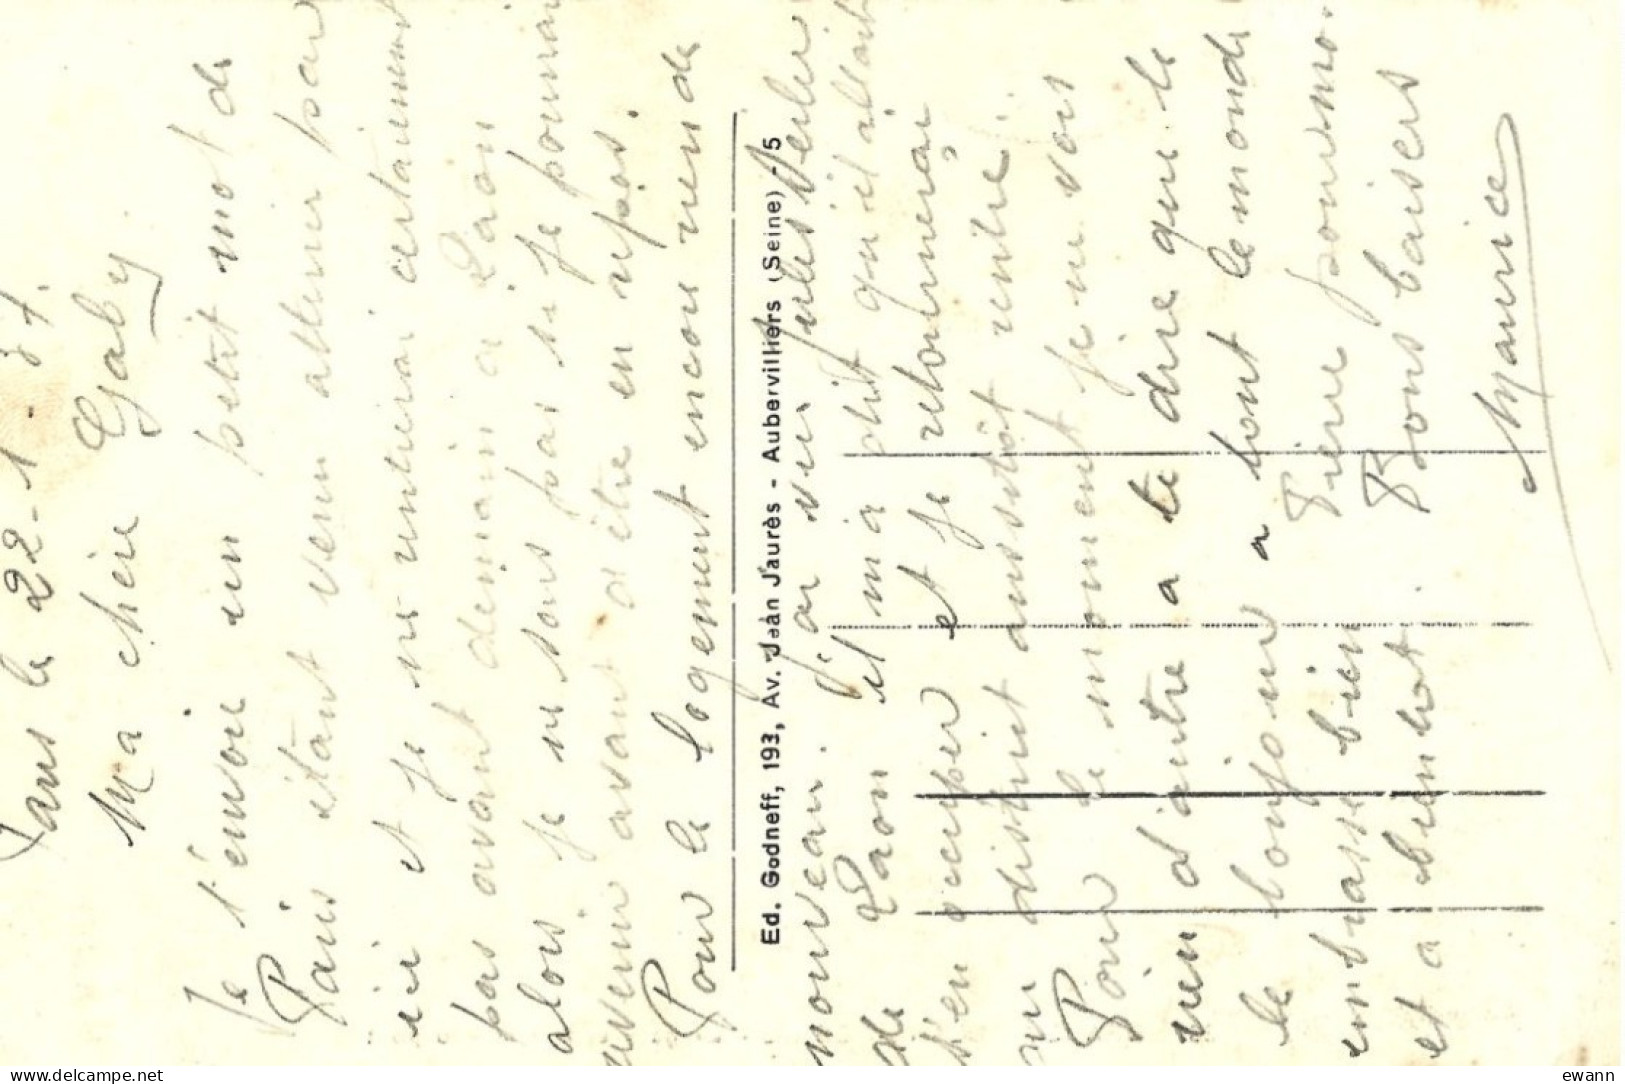 Paris le 22-1-37.
Ma chère Gaby
Je t'envoie un petit mot de
Paris étant venu atterrir par
ici et je ne rentrerai certainement
pas avant demain a Laon
alors je ne sais pas si je pourrai
revenir avant d'être en repos.
Pour le logement encore rien de
Ed. Godneff, 193, Av. Jean Jaurès - Aubervilliers (Seine) - 5
nouveau. j'ai vu Jules
de Laon il m'a dit qu'il allait
s'en occuper et je retournerai
au aussitôt rentré.
Pour le moment je ne vois
rien d'autre a te dire que le
le bonjour a tout le monde
embrasse bien Pierre pour moi
et a bientôt. Bons baisers
Maurice
delcampe.net
ewann